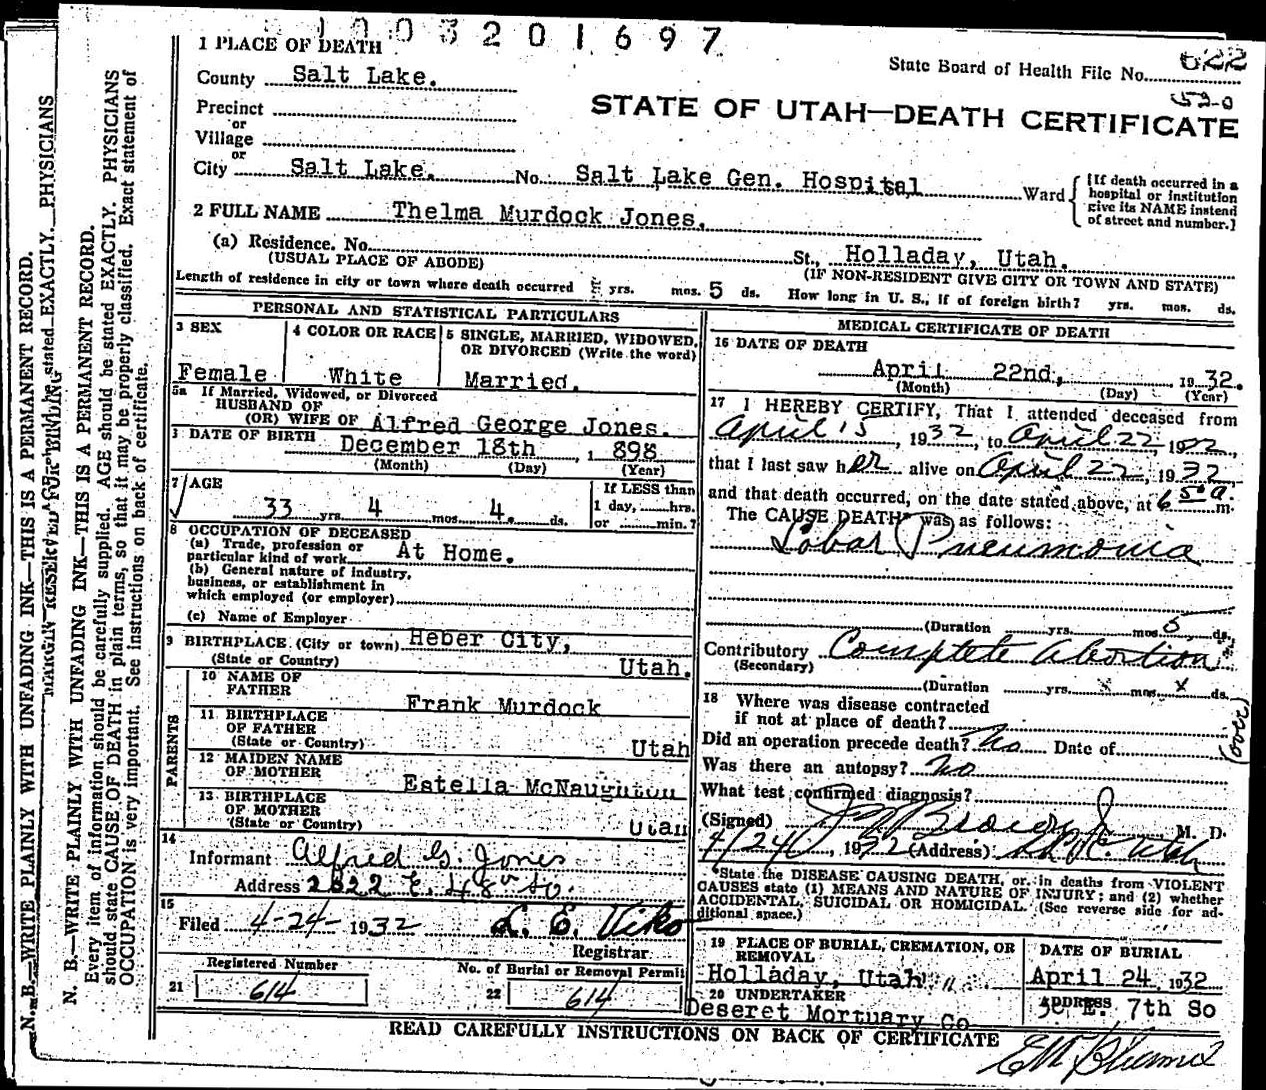 1003201697
1 PLACE OF DEATH
State Board of Health File No. 622
County Salt Lake.
520
STATE OF UTAH—DEATH CERTIFICATE
Precinct
or
Village
or
City Salt Lake. No. Salt Lake Gen. Hospital Ward
[If death occurred in a
hospital or institution
give its NAME instead
of street and number.]
2 FULL NAME Thelma Murdock Jones.
(a) Residence. No. St., Holladay, Utah.
(USUAL PLACE OF ABODE) (IF NON-RESIDENT GIVE CITY OR TOWN AND STATE)
Length of residence in city or town where death occurred yrs. mos. 5 ds. How long in U. S., if of foreign birth? yrs. mos. ds.
PERSONAL AND STATISTICAL PARTICULARS
3 SEX
Female
4 COLOR OR RACE
White
5 SINGLE, MARRIED, WIDOWED,
OR DIVORCED (Write the word)
Married.
5a If Married, Widowed, or Divorced
HUSBAND OF
(OR) WIFE OF Alfred George Jones.
DATE OF BIRTH December 18th , 1 898
(Month) (Day) (Year)
7 AGE
33 yrs. 4 mos. 4. ds.
If LESS than
1 day, hrs.
or min.?
8 OCCUPATION OF DECEASED
(a) Trade, profession or
particular kind of work At Home.
(b) General nature of industry,
business, or establishment in
which employed (or employer)
(c) Name of Employer
9 BIRTHPLACE (City or town) Heber City,
(State or Country) Utah.
PARENTS
10 NAME OF
FATHER Frank Murdock
11 BIRTHPLACE
OF FATHER
(State or Country) Utah
12 MAIDEN NAME
OF MOTHER Estella McNaughton
13 BIRTHPLACE
OF MOTHER
(State or Country) Utah
14
Informant Alfred G. Jones
Address 2822 E. 48th So.
15
Filed 4-24- 1932 L. E. Viko
Registrar
Registered Number
21 614
No. of Burial or Removal Permit
22 614
MEDICAL CERTIFICATE OF DEATH
16 DATE OF DEATH
April 22nd, , 1932.
(Month) (Day) (Year)
17 I HEREBY CERTIFY, That I attended deceased from
April 15, 1932, to April 22, 1932,
that I last saw her alive on April 22, 1932,
and that death occurred, on the date stated above, at 6 50 a. m.
The CAUSE DEATH* was as follows:
Lobar Pneumonia
(Duration yrs. mos. 5 ds.
Contributory Complete Abortion
(Secondary)
(Duration yrs. x mos. x ds.
(over)
18 Where was disease contracted
if not at place of death?
Did an operation precede death? No Date of
Was there an autopsy? No
What test confirmed diagnosis?
(Signed) M. D.
4/24, 1932 (Address) Utah
*State the DISEASE CAUSING DEATH, or in deaths from VIOLENT
CAUSES state (1) MEANS AND NATURE OF INJURY; and (2) whether
ACCIDENTAL, SUICIDAL OR HOMICIDAL. (See reverse side for ad-
ditional space.)
19 PLACE OF BURIAL, CREMATION, OR
REMOVAL
Holladay, Utah
DATE OF BURIAL
April 24 1932
20 UNDERTAKER
Deseret Mortuary Co
ADDRESS
36 E. 7th So
READ CAREFULLY INSTRUCTIONS ON BACK OF CERTIFICATE
N. B.—WRITE PLAINLY WITH UNFADING INK—THIS IS A PERMANENT RECORD.
MARGIN RESERVED FOR BINDING
stated EXACTLY. PHYSICIANS
N. B.—WRITE PLAINLY WITH UNFADING INK—THIS IS A PERMANENT RECORD.
Every item of information should be carefully supplied. AGE should be stated EXACTLY. PHYSICIANS
should state CAUSE OF DEATH in plain terms, so that it may be properly classified. Exact statement of
OCCUPATION is very important. See instructions on back of certificate.